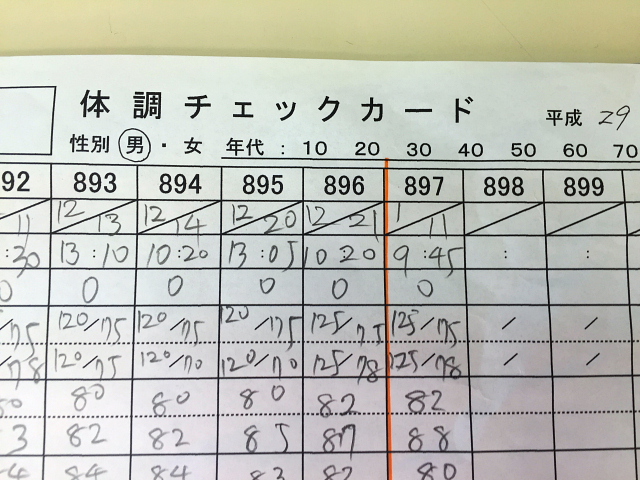 体調チェックカード 平成 29
性別 男・女 年代: 10 20 30 40 50 60 70
92 893 894 895 896 897 898 899
11 12/13 12/14 12/20 12/21 1/11
:30 13:10 10:20 13:05 10:20 9:45 : :
0 0 0 0 0 0
/75 120/75 120/75 120/75 125/75 125/75 / /
/78 120/75 120/70 120/70 125/78 125/78 / /
80 80 80 82 82
3 82 82 85 87 88
84 84 83 82 80